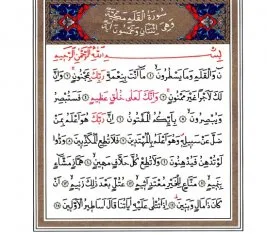 سورة القلم مكية
وهي اثنتان وخمسون آية
بسم الله الرحمن الرحيم
ن والقلم وما يسطرون ما أنت بنعمة ربك بمجنون وإن
لك لأجرا غير ممنون وإنك لعلى خلق عظيم فستبصر
ويبصرون بأيكم المفتون إن ربك هو أعلم بمن
ضل عن سبيله وهو أعلم بالمهتدين فلا تطع المكذبين ودوا
لو تدهن فيدهنون ولا تطع كل حلاف مهين هماز مشاء
بنميم مناع للخير معتد أثيم عتل بعد ذلك زنيم أن
كان ذا مال وبنين إذا تتلى عليه آياتنا قال أساطير الأولين